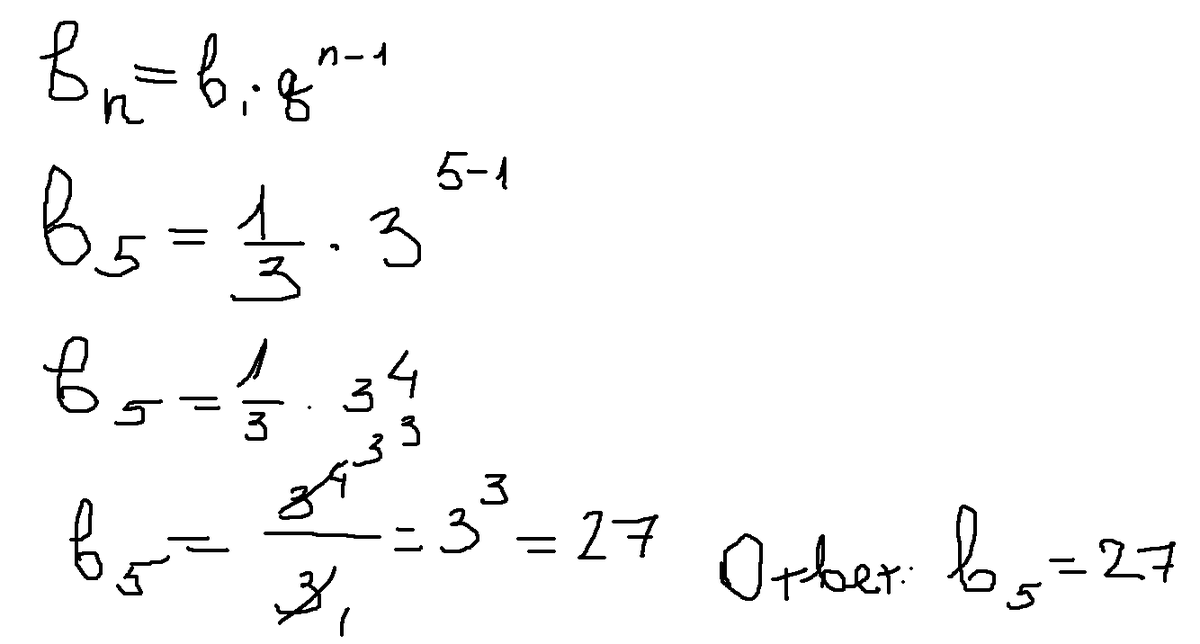 bₙ = b₁ · qⁿ⁻¹
b₅ = 1/3 · 3⁵⁻¹
b₅ = 1/3 · 3⁴
b₅ = 3⁴ 3³ / 3 1 = 3³ = 27
Ответ: b₅ = 27